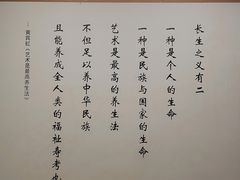 长生之义有二
一种是个人的生命
一种是民族与国家的生命
艺术是最高的养生法
不但足以养中华民族
且能养成全人类的福祉寿考也
——黄宾虹《艺术是最高养生法》